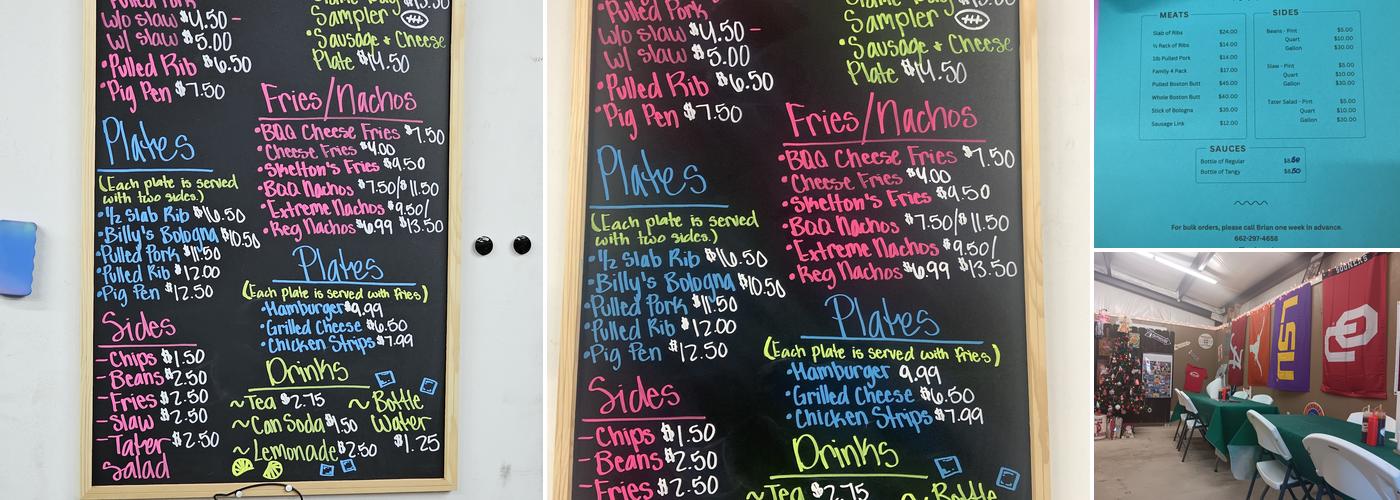 Pulled Pork
w/o slaw $4.50 -
w/ slaw $5.00
•Pulled Rib $6.50
•Pig Pen $7.50
Plates
(Each plate is served
with two sides.)
•1/2 Slab Rib $16.50
•Billy's Bologna $10.50
•Pulled Pork $11.50
•Pulled Rib $12.00
•Pig Pen $12.50
Sides
-Chips $1.50
-Beans $2.50
-Fries $2.50
-Slaw $2.50
-Tater $2.50
Salad
Sampler
•Sausage & Cheese
Plate $14.50
Fries/Nachos
•BBQ Cheese Fries $7.50
•Cheese Fries $4.00
•Skelton's Fries $9.50
•BBQ Nachos $7.50/$11.50
•Extreme Nachos $9.50/
$13.50
•Reg Nachos $6.99
Plates
(Each plate is served with fries)
•Hamburger $9.99
•Grilled Cheese $6.50
•Chicken Strips $7.99
Drinks
~Tea $2.75
~Can Soda $1.50
~Lemonade $2.50
~Bottle
Water
$1.25
Pulled Pork
w/o slaw $4.50 -
w/ slaw $5.00
•Pulled Rib $6.50
•Pig Pen $7.50
Plates
(Each plate is served
with two sides.)
•1/2 Slab Rib $16.50
•Billy's Bologna $10.50
•Pulled Pork $11.50
•Pulled Rib $12.00
•Pig Pen $12.50
Sides
-Chips $1.50
-Beans $2.50
-Fries $2.50
Sampler
•Sausage & Cheese
Plate $14.50
Fries/Nachos
•BBQ Cheese Fries $7.50
•Cheese Fries $4.00
•Skelton's Fries $9.50
•BBQ Nachos $7.50/$11.50
•Extreme Nachos $9.50/
$13.50
•Reg Nachos $6.99
Plates
(Each plate is served with fries)
•Hamburger 9.99
•Grilled Cheese $6.50
•Chicken Strips $7.99
Drinks
~Tea $2.75
~Bottle
MEATS
Slab of Ribs $24.00
½ Rack of Ribs $14.00
1lb Pulled Pork $14.00
Family 4 Pack $17.00
Pulled Boston Butt $45.00
Whole Boston Butt $40.00
Stick of Bologna $35.00
Sausage Link $12.00
SIDES
Beans - Pint $5.00
Quart $10.00
Gallon $30.00
Slaw - Pint $5.00
Quart $10.00
Gallon $30.00
Tater Salad - Pint $5.00
Quart $10.00
Gallon $30.00
SAUCES
Bottle of Regular
Bottle of Tangy
For bulk orders, please call Brian one week in advance.
662-297-4658
SOONERS
LSU